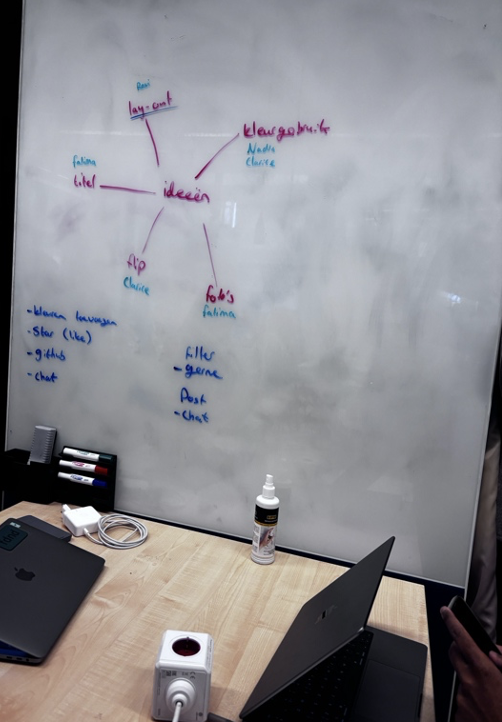 lay-out
kleurgebruik
Nadia
Clarire
fatima
titel
ideeën
flip
Clarire
foto's
fatima
- Star (like)
- github
- chat
filler
- genre
Post
- chat